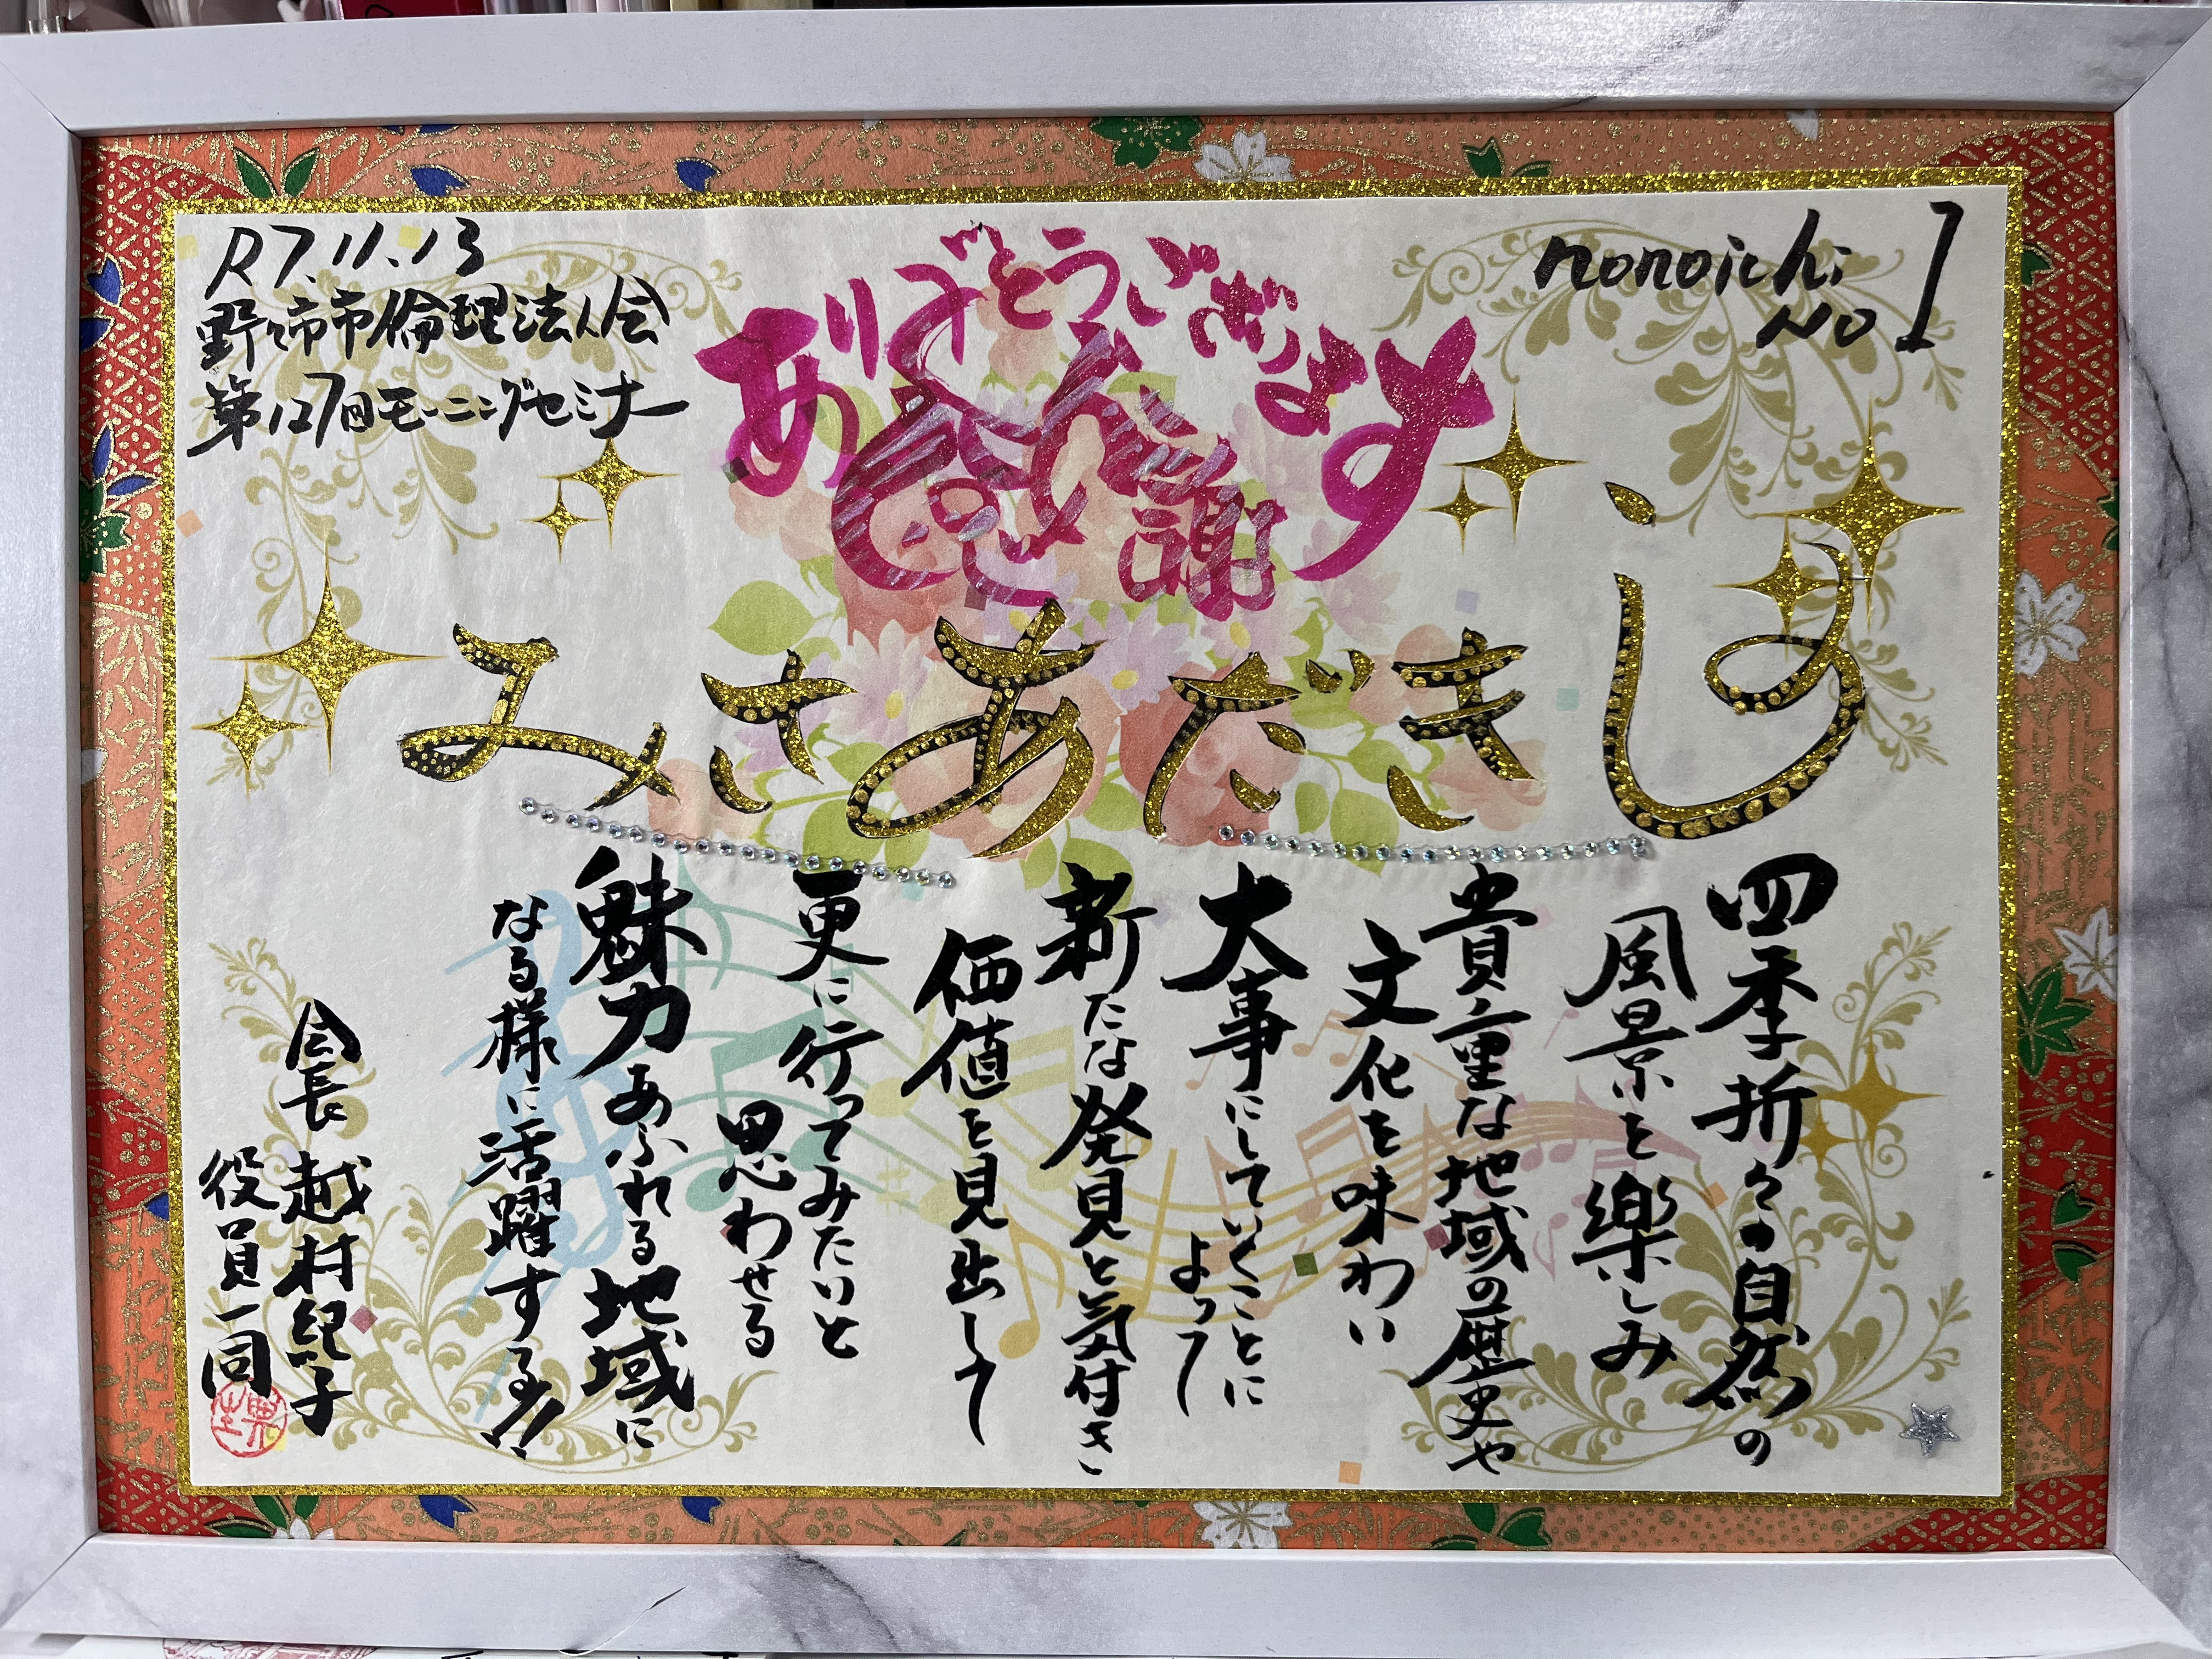 R7.11.13
野々市市倫理法人会
第127回モーニングセミナー
ありがとうございます
感謝
nonoichi
No 1
しきだあさみ
四季折々の自然の
風景を楽しみ
貴重な地域の歴史や
文化を味わい
大事にしていくことに
よって
新たな発見と気付き
価値を見出して
更に行ってみたいと
思わせる
魅力あふれる地域に
なる様に活躍する!!
会長 越村紀子
役員一同